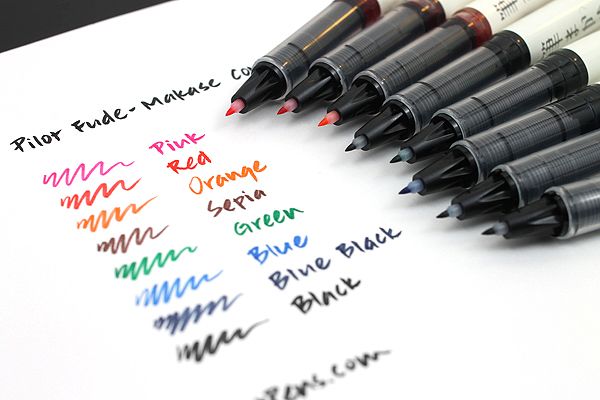 Pilot Fude-Makase Co
Pink
Red
Orange
Sepia
Green
Blue
Blue Black
Black
Pens.com